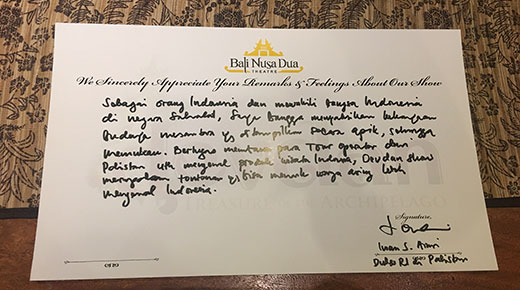 Bali Nusa Dua
THEATRE
We Sincerely Appreciate Your Remarks & Feelings About Our Show
Sebagai orang Indonesia dan mewakili bangsa Indonesia
di negara sahabat, saya bangga menyaksikan kekayaan
Budaya nusantara yg ditampilkan secara apik, sehingga
memukau. Berhasil membawa para Tour operator dari
Pakistan utk mengenal produk wisata Indonesia, Devdan show
merupakan tontonan yg bisa menarik warga asing lebih
mengenal Indonesia.
TREASURE OF THE ARCHIPELAGO
Signature,
Ivan S. Amri
Dubes RI Pakistan